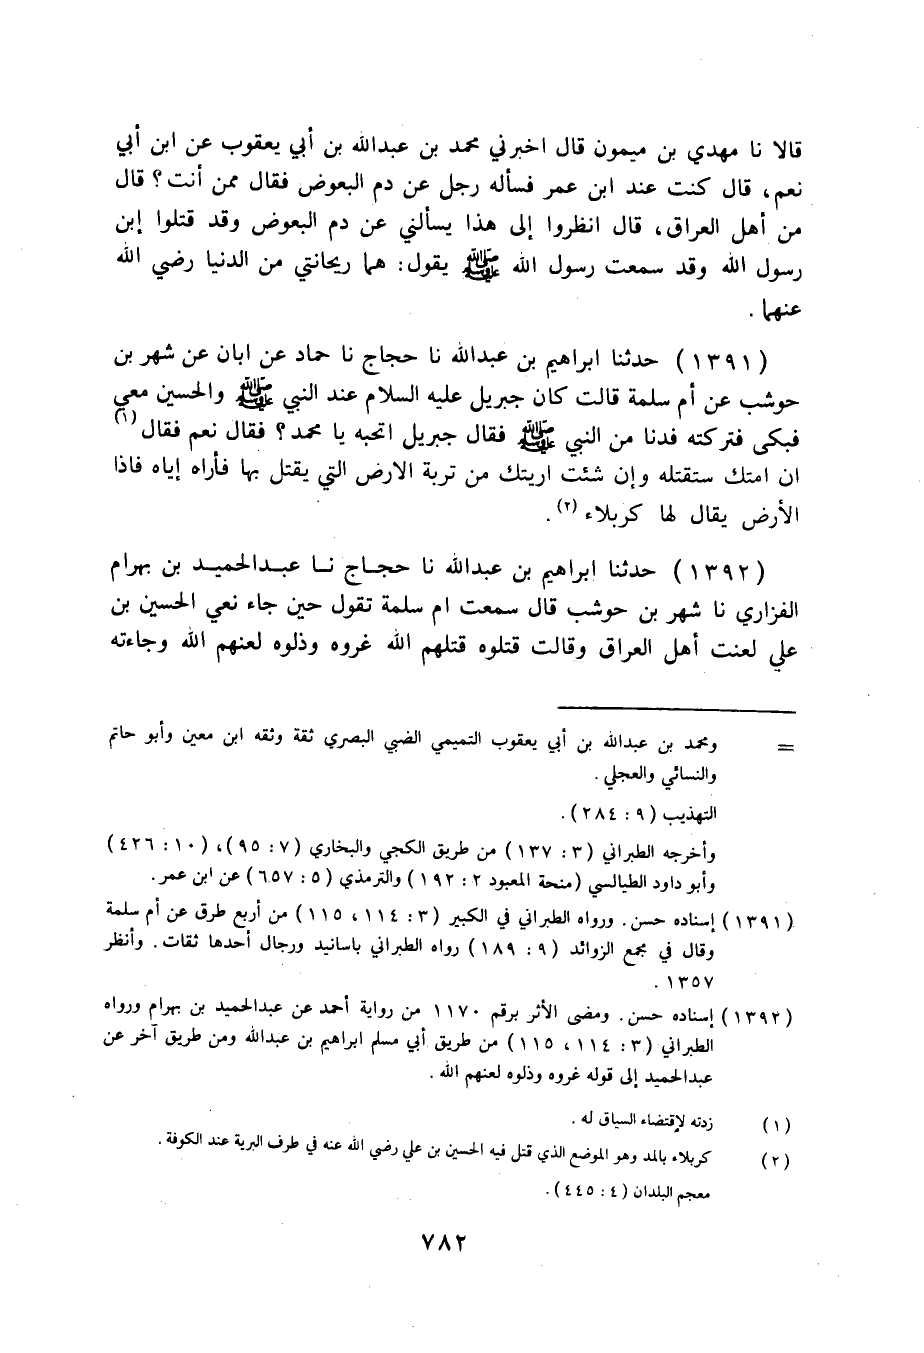 قالا نا مهدي بن ميمون قال اخبرني محمد بن عبدالله بن أبي يعقوب عن ابن أبي
نعم، قال كنت عند ابن عمر فسأله رجل عن دم البعوض فقال ممن أنت؟ قال
من أهل العراق، قال انظروا إلى هذا يسألني عن دم البعوض وقد قتلوا إبن
رسول الله وقد سمعت رسول الله ﷺ يقول: هما ريحانتي من الدنيا رضي الله
عنهما.
(١٣٩١) حدثنا ابراهيم بن عبدالله نا حجاج نا حماد عن ابان عن شهر بن
حوشب عن أم سلمة قالت كان جبريل عليه السلام عند النبي ﷺ والحسين معي
فبكى فتركته فدنا من النبي ﷺ فقال جبريل اتحبه يا محمد؟ فقال نعم فقال (١)
ان امتك ستقتله وإن شئت اريتك من تربة الارض التي يقتل بها فأراه إياه فاذا
الأرض يقال لها كربلاء (٢).
(١٣٩٢) حدثنا ابراهيم بن عبدالله نا حجاج نا عبدالحميد بن بهرام
الفزاري نا شهر بن حوشب قال سمعت ام سلمة تقول حين جاء نعي الحسين بن
علي لعنت أهل العراق وقالت قتلوه قتلهم الله غروه وذلوه لعنهم الله وجاءته
= ومحمد بن عبدالله بن أبي يعقوب التميمي الضبي البصري ثقة وثقه ابن معين وأبو حاتم
والنسائي والعجلي.
التهذيب (٩: ٢٨٤).
وأخرجه الطبراني (٣: ١٣٧) من طريق الكجي والبخاري (٧: ٩٥)، (١٠: ٤٢٦)
وأبو داود الطيالسي (منحة المعبود ٢: ١٩٢) والترمذي (٥: ٦٥٧) عن ابن عمر.
(١٣٩١) إسناده حسن. ورواه الطبراني في الكبير (٣: ١١٤، ١١٥) من أربع طرق عن أم سلمة
وقال في مجمع الزوائد (٩: ١٨٩) رواه الطبراني باسانيد ورجال أحدها ثقات. وأنظر
١٣٥٧.
(١٣٩٢) إسناده حسن. ومضى الأثر برقم ١١٧٠ من رواية أحمد عن عبدالحميد بن بهرام ورواه
الطبراني (٣: ١١٤، ١١٥) من طريق أبي مسلم ابراهيم بن عبدالله ومن طريق آخر عن
عبدالحميد إلى قوله غروه وذلوه لعنهم الله.
(١) زدته لإقتضاء السياق له.
(٢) كربلاء بالمد وهو الموضع الذي قتل فيه الحسين بن علي رضي الله عنه في طرف البرية عند الكوفة.
معجم البلدان (٤: ٤٤٥).
٧٨٢